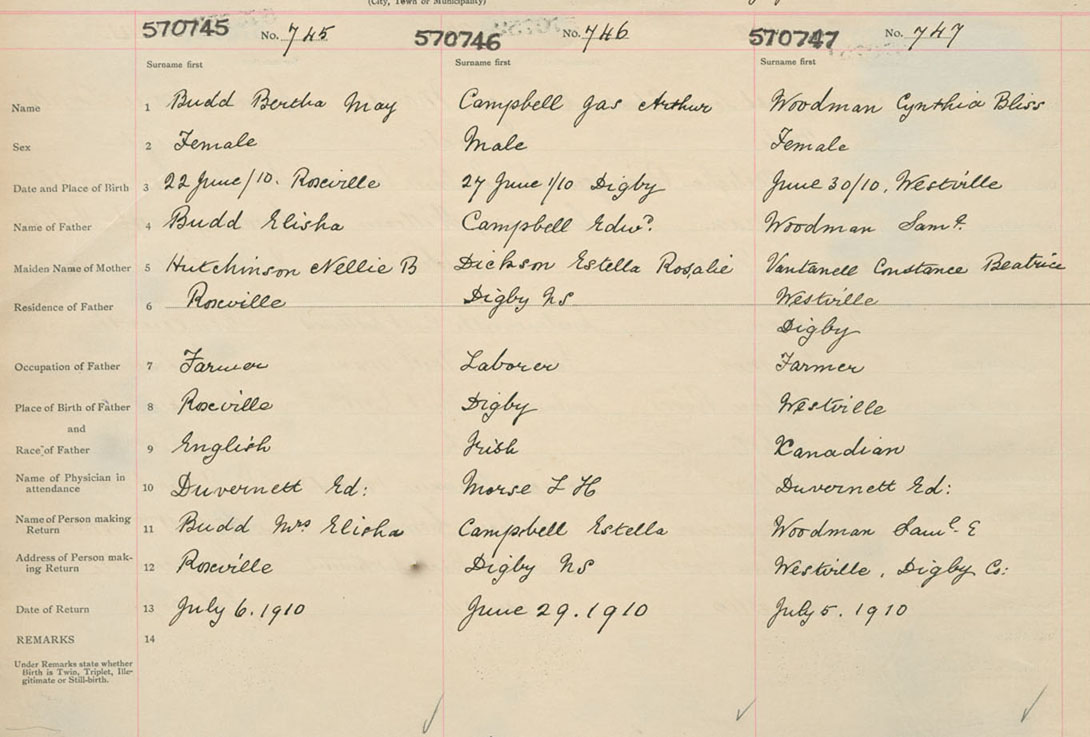 (City, Town or Municipality)
570745 No. 745 570746 No. 746 570747 No. 747
Surname first Surname first Surname first
Name 1 Budd Bertha May Campbell Jas Arthur Woodman Cynthia Bliss
Sex 2 Female Male Female
Date and Place of Birth 3 22 June/10. Roxville 27 June 1/10 Digby June 30/10, Westville
Name of Father 4 Budd Elisha Campbell Edwd. Woodman Saml.
Maiden Name of Mother 5 Hutchinson Nellie B Dickson Estella Rosalie Vantanell Constance Beatrice
Residence of Father 6 Roxville Digby NS Westville
Digby
Occupation of Father 7 Farmer Laborer Farmer
Place of Birth of Father 8 Roxville Digby Westville
and
Race of Father 9 English Irish Canadian
Name of Physician in
attendance 10 Duvernett Ed: Morse L H Duvernett Ed:
Name of Person making
Return 11 Budd Mrs Elisha Campbell Estella Woodman Saml. E
Address of Person mak-
ing Return 12 Roxville Digby NS Westville, Digby Co:
Date of Return 13 July 6. 1910 June 29. 1910 July 5. 1910
REMARKS 14
Under Remarks state whether
Birth is Twin, Triplet, Ille-
gitimate or Still-birth.